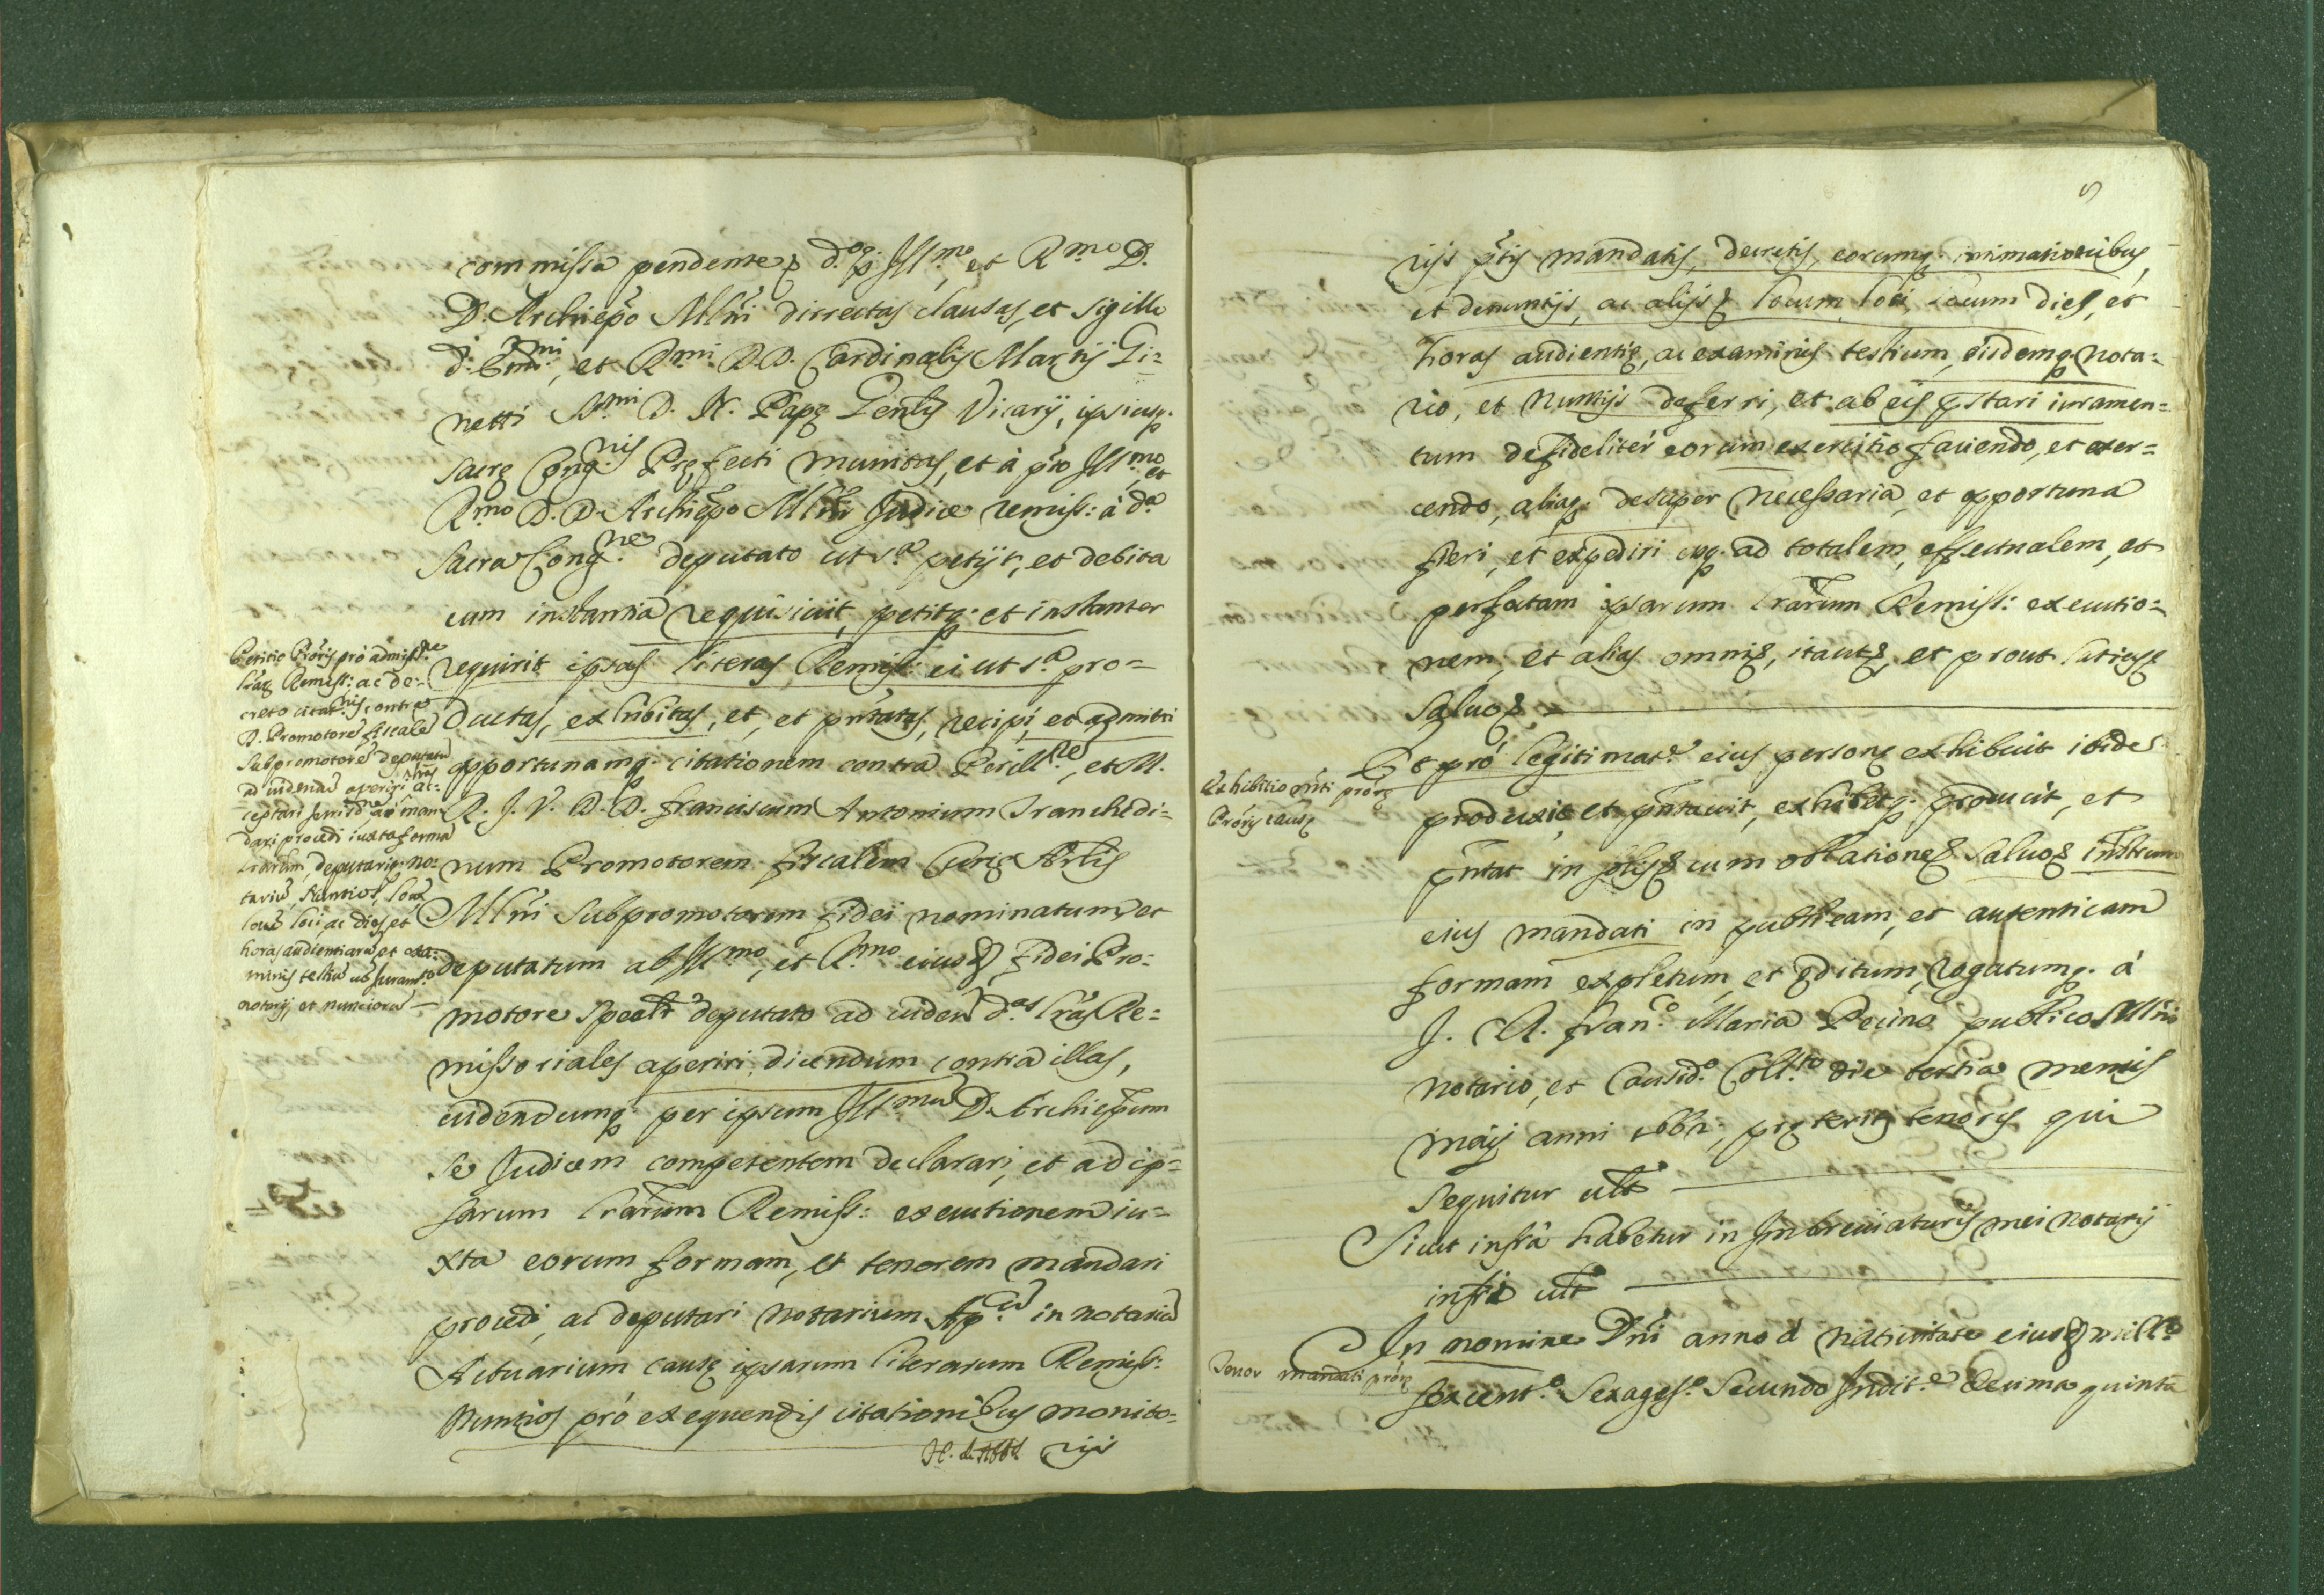 commissa pendente p d.º p. Ill.mo et R.mo D.
D. Archiepõ Mlni directas clausas, et sigillo
d. Emi.mi, et R.mi D.D. Cardinalis Martij Gi=
netti S.mi D. N. Papę Genlis Vicarij, ipsiusq.
sacrę Cong.nis Pręfecti munitas, et à pto Ill.mo et
R.mo D. D. Archiepõ Mlni Judice remiss: à d.a
Sacra Cong.ne deputato ut s.a petijt, et debita
cum instantia requisiuit, petitq. et instanter
requirit ipsas literas Remiss: ei ut s.a pro=
ductas, exhibitas, et, et pntatas, recipi, et admitti
opportunamq. citationem contra Perill.re, et M.
R. J. V. D. D. Franciscum Antonium Tranchedi=
num Promotorem fiscalem Curię Arlis
Mlni Subpromotorem fidei nominatum, et
deputatum ab Ill.mo, et R.mo eiusd. fidei Pro=
motore spealr deputato ad viden d.as lras Re=
missoriales aperiri, dicendum contra illas,
videndumq. per ipsum Ill.mu D. Archiepum
se Judicem competentem declarari, et ad ip=
sarum lrarum Remiss: executionem iu=
xta eorum formam, et tenorem mandari
procedi, ac deputari notarium Ap.cu in notariu
Actuarium causę ipsarum literarum Remiss:
Nuntios pró exequendis citationibus monito=
rijs
Petitio Proris pró admiss.ne
lraru Remiss: ac de=
creto citat.nis contra
D. Promotore fiscale
Subpromotore deputatu
ad videndu aperiri lras
dari procedi iuxta forma
lrarum, deputariq. no=
tariu, Nuntios, locu
locu loci ac dies, et
horas audientiaru et exa=
minis testiu ut iuram.to
notarij, et nuncioru
5
rijs ptis mandatis, decretis, eorumq. intimationibus,
et denuntijs, ac alijs locum loci, locum dies, et
horas audientię, ac examinis testium, eisdemq. nota=
rio, et Nuntijs deferri, et ab eis pstari iuramen=
tum de fideliter eorum exercitio faciendo, et exer=
cendo, aliaq. desuper necessaria, et opportuna
fieri, et expediri usq. ad totalem, effectualem, et
perfectam ipsarum lrarum Remiss: executio=
nem, et alias omni, itaut, et prout latius
Saluo
Et pró legitimat.e eius personę exhibuit ibidem
produxit, et pntauit, exhibetq. producit, et
pntat in cum oblatione saluo Instrum
eius mandati in publicam, et autenticam
formam expletum, et editum, rogatumq. à
J. R. Fran.co Maria Pecino publico Mlni
notario, et Causid.o Coll.to die tertia mensis
maij anni 1662, pręteriti tenoris qui
sequitur ult
Sicut infrà habetur in Imbreuiaturis mei notarij
infri ult
In nomine Dni anno a natiuitate eiusd mill.o
sexcent.o sexages.o secundo Indit.e decima quinta
Exhibitio mti proręi
Proris causę
Tenor mandati prorę